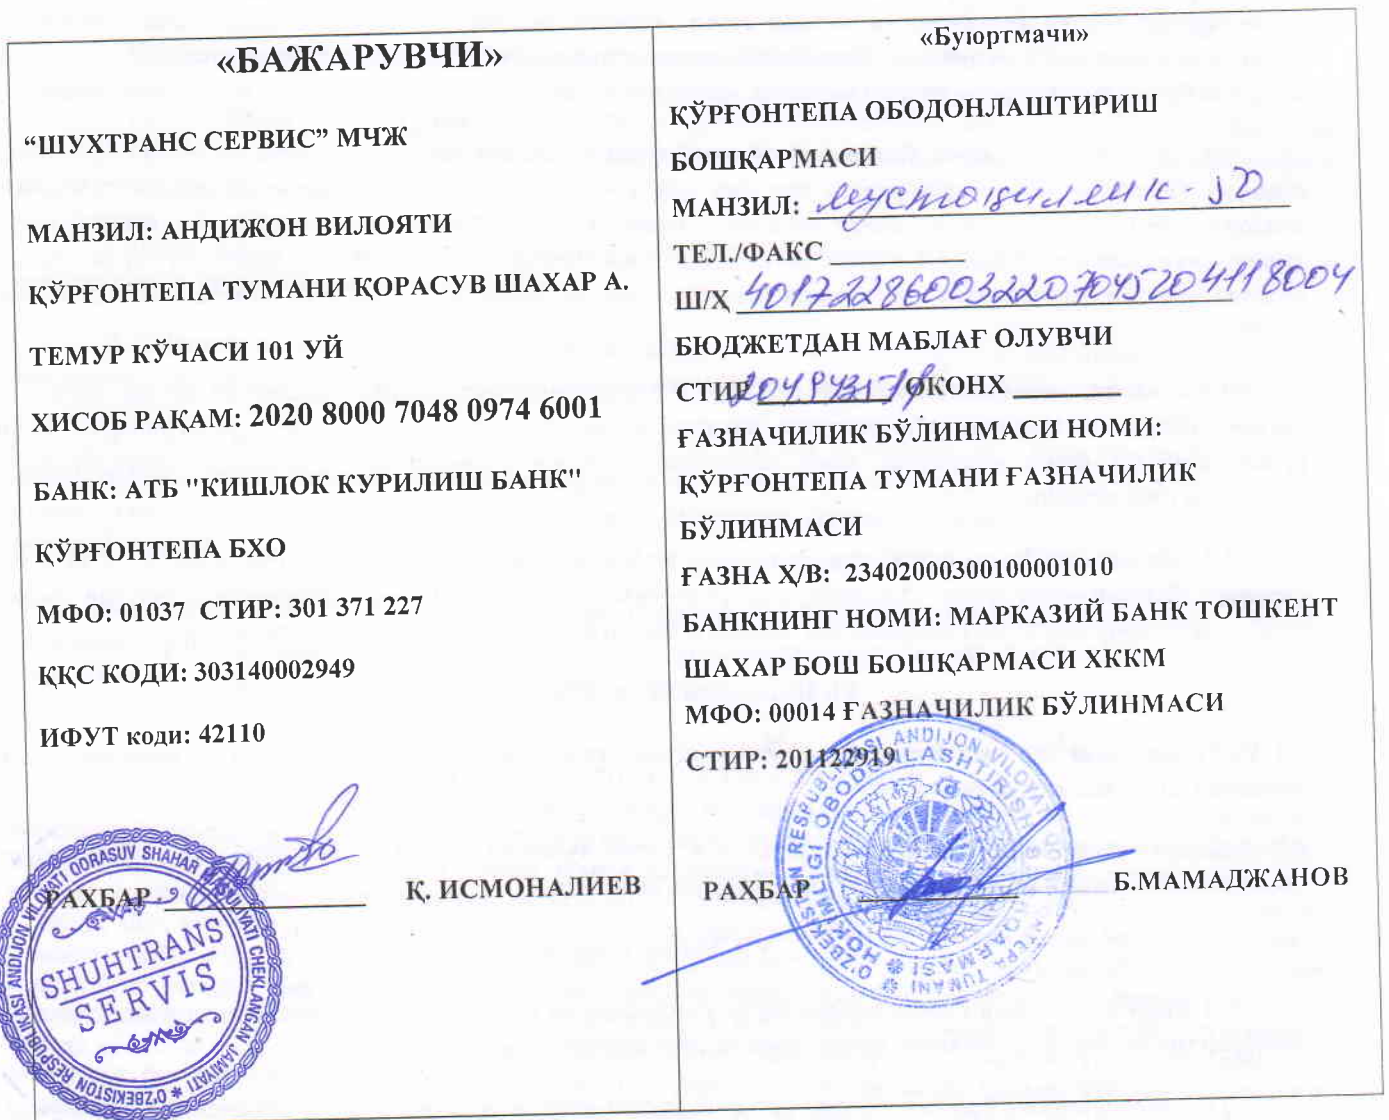 «БАЖАРУВЧИ»
“ШУХТРАНС СЕРВИС” МЧЖ
МАНЗИЛ: АНДИЖОН ВИЛОЯТИ
ҚЎРҒОНТЕПА ТУМАНИ ҚОРАСУВ ШАХАР А.
ТЕМУР КЎЧАСИ 101 УЙ
ХИСОБ РАҚАМ: 2020 8000 7048 0974 6001
БАНК: АТБ "КИШЛОК КУРИЛИШ БАНК"
ҚЎРҒОНТЕПА БХО
МФО: 01037 СТИР: 301 371 227
ҚҚС КОДИ: 303140002949
ИФУТ коди: 42110
РАХБАР Қ. ИСМОНАЛИЕВ
O'ZBEKISTON RESPUBLIKASI ANDIJON VILOYATI QORASUV SHAHAR MAS'ULIYATI CHEKLANGAN JAMIYATI
SHUHTRANS
SERVIS
«Буюртмачи»
ҚЎРҒОНТЕПА ОБОДОНЛАШТИРИШ
БОШҚАРМАСИ
МАНЗИЛ: Мустақиллик-
ТЕЛ./ФАКС
Ш/Ҳ 401722860032207045204118004
БЮДЖЕТДАН МАБЛАҒ ОЛУВЧИ
СТИР ОКОНХ
ҒАЗНАЧИЛИК БЎЛИНМАСИ НОМИ:
ҚЎРҒОНТЕПА ТУМАНИ ҒАЗНАЧИЛИК
БЎЛИНМАСИ
ҒАЗНА Ҳ/В: 23402000300100001010
БАНКНИНГ НОМИ: МАРКАЗИЙ БАНК ТОШКЕНТ
ШАХАР БОШ БОШҚАРМАСИ ХККМ
МФО: 00014 ҒАЗНАЧИЛИК БЎЛИНМАСИ
СТИР: 201122919
РАҲБАР Б.МАМАДЖАНОВ
O'ZBEKISTON RESPUBLIKASI ANDIJON VILOYATI TUMANI
HOKIMLIGI OBODONLASHTIRISH BOSHQARMASI